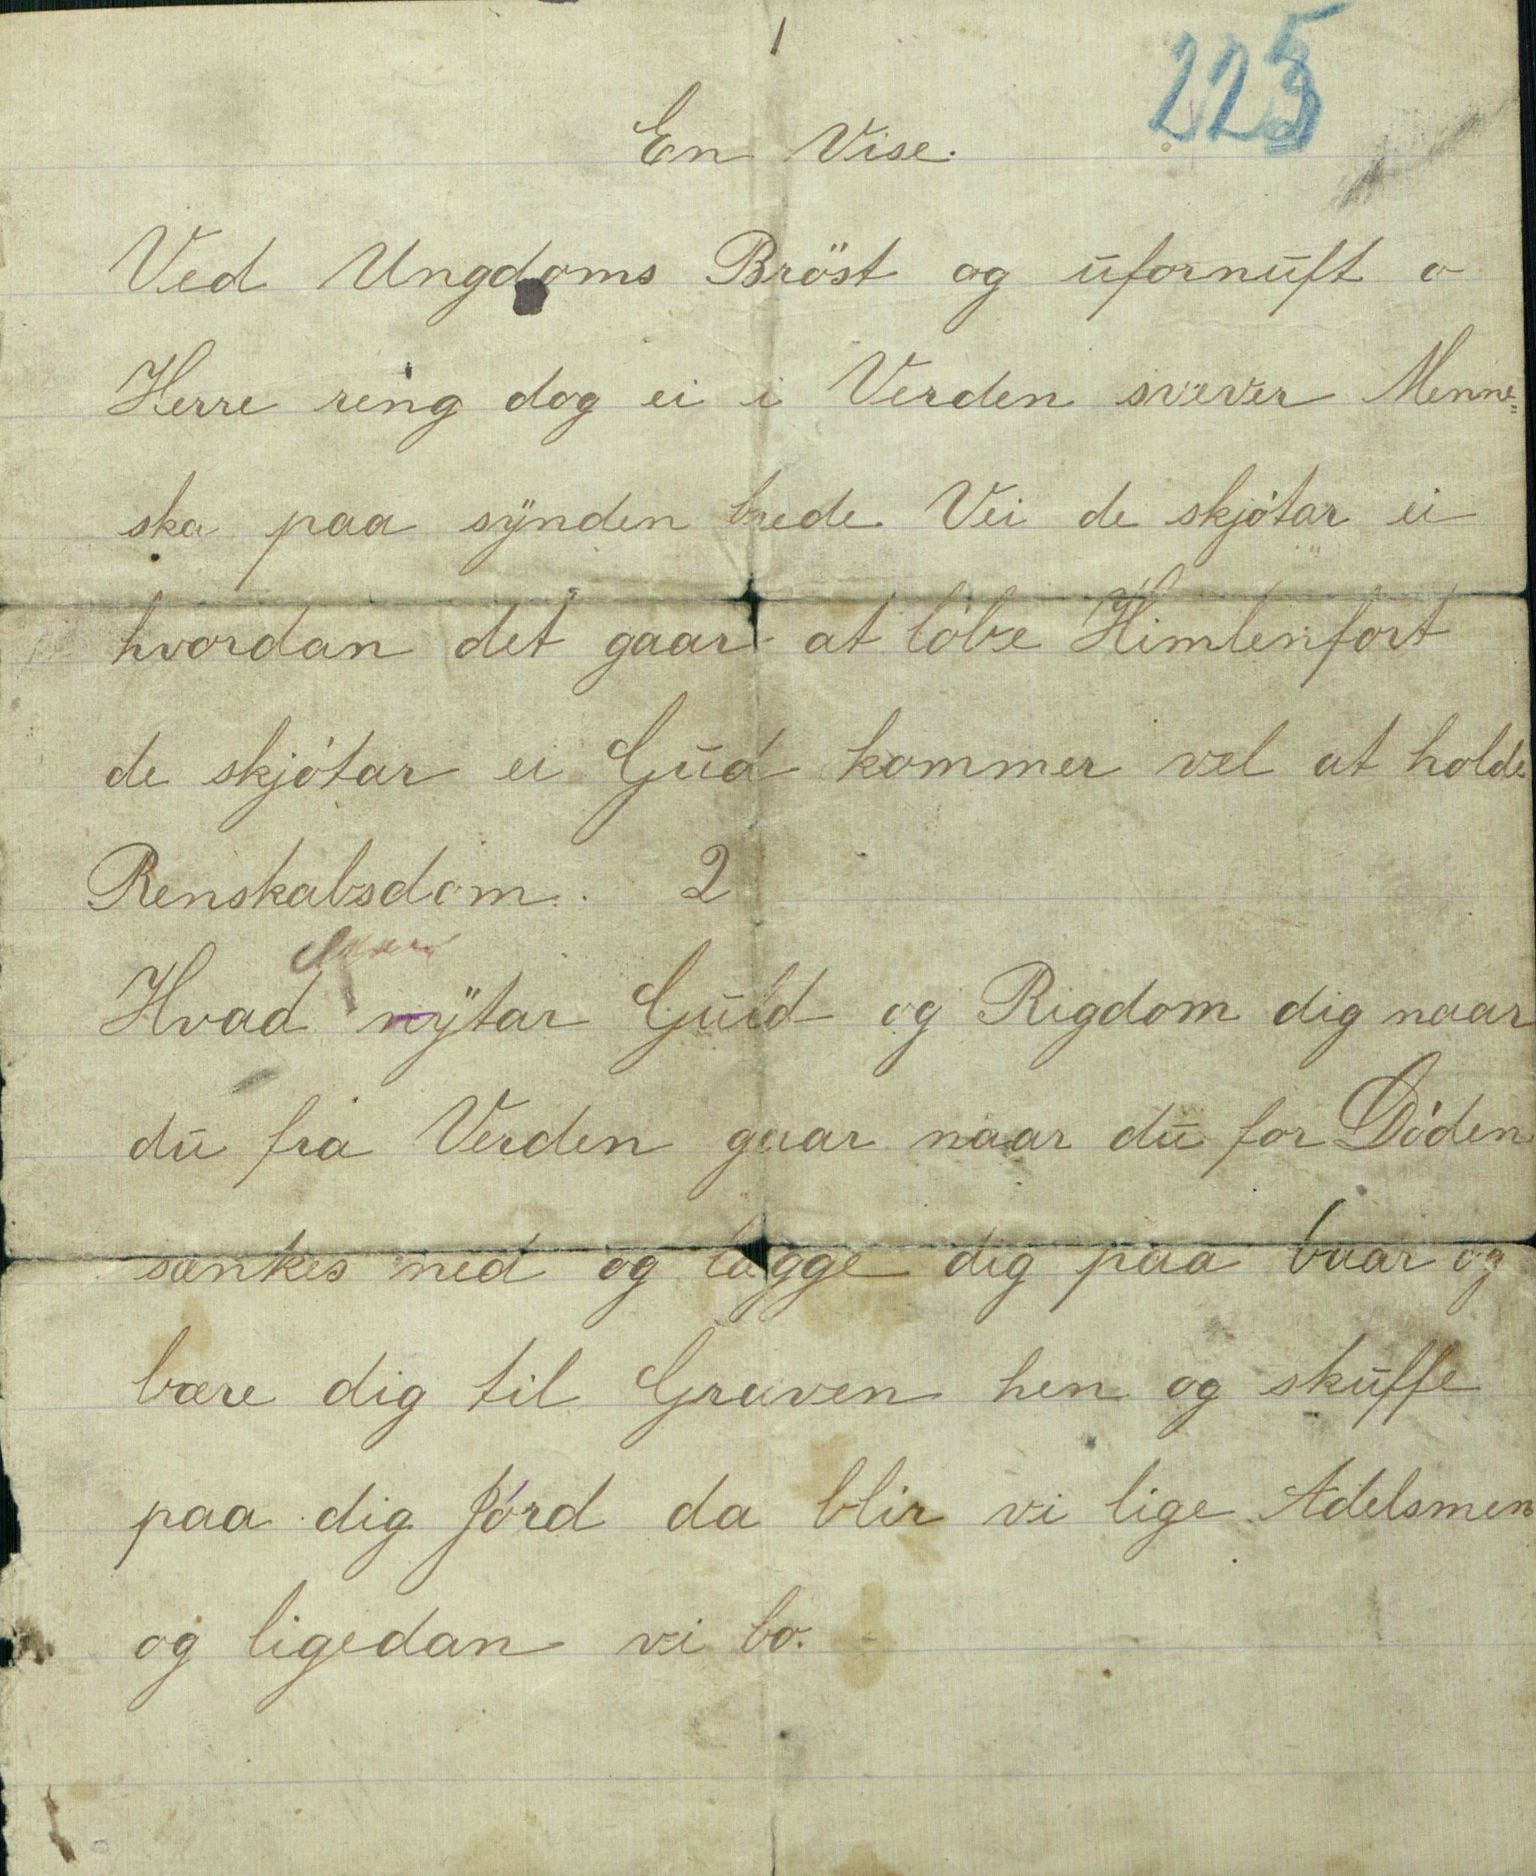 1
225
En Vise.
Ved Ungdoms Bröst og ufornuft o
Herre ring dog ei i Verden svever Menne=
ska paa synden brede Vei de skjötar ei
hvordan det gaar at löbe Himlenfort
de skjötar ei Gud kommer vel at holde
Renskabsdom. 2
Hvad nÿtar Guld og Rigdom dig naar
du fra Verden gaar naar du for Döden
sænkes ned og lægge dig paa baar og
bære dig til Graven hen og skuffe
paa dig Jörd da blir vi lige Adelsmen
og ligedan vi bo.